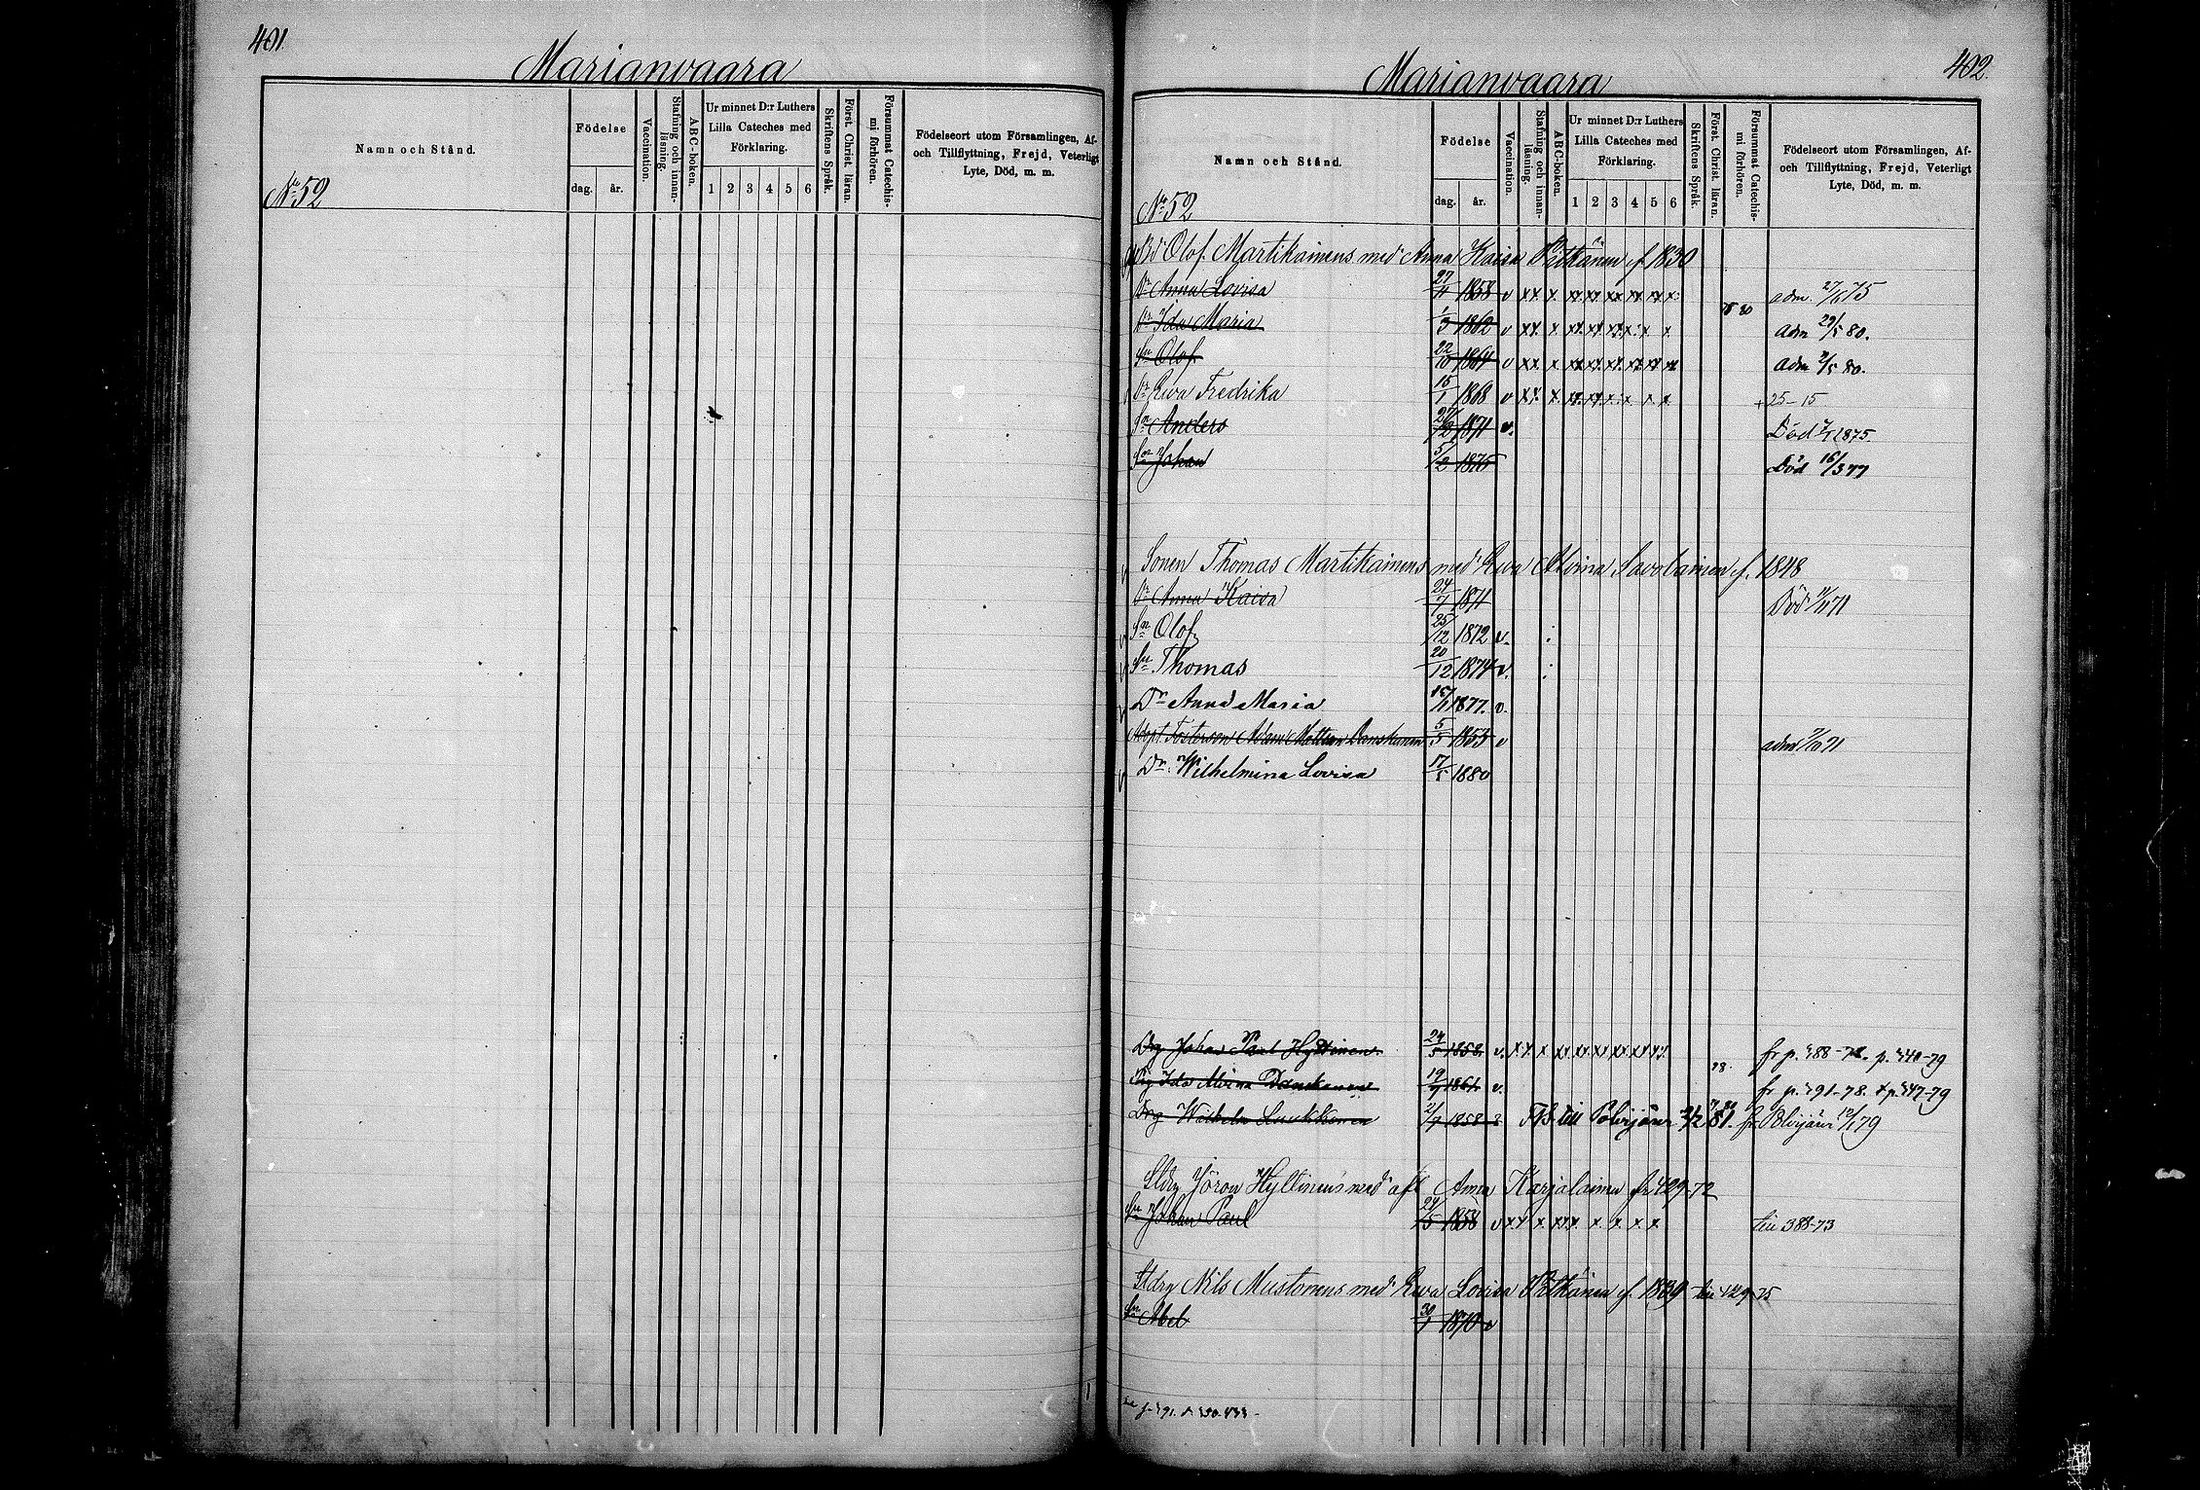 401.
Marianvaara
Namn och Stånd.
Födelse
dag. år.
Vaccination.
Stafning och innanläsning.
ABC-boken.
Ur minnet D:r Luthers Lilla Cateches med Förklaring.
1 2 3 4 5 6
Skriftens Språk.
Först. Christ. läran.
Försummat Catechismi förhören.
Födelseort utom Församlingen, Af- och Tillflyttning, Frejd, Veterligt Lyte, Död, m. m.
No 52
402.
Marianvaara
Namn och Stånd.
Födelse
dag. år.
Vaccination.
Stafning och innanläsning.
ABC-boken.
Ur minnet D:r Luthers Lilla Cateches med Förklaring.
1 2 3 4 5 6
Skriftens Språk.
Först. Christ. läran.
Försummat Catechismi förhören.
Födelseort utom Församlingen, Af- och Tillflyttning, Frejd, Veterligt Lyte, Död, m. m.
No 52
Bd Olof Martikainens med Anna Kaisa Pitkänen f 1830
Dr Anna Lovisa 27/11 1858 v xx x xx xx xx xx xx x adm. 27/6 75
Dr Ida Maria 1/3 1862 v xx x adm 29/5 80.
Sn Olof 22/10 1864 v xx x adm 2/5 80.
Dr Eva Fredrika 15/1 1868 v xx x 25-15
Sn Anders 1871 v. Död 1875
Sn Johan 5/2 1875 Död 16/3 77
Sonen Thomas Martikainens med Eva Alvina Savolainen f. 1848
Dr Anna Kaisa 24/7 1871 Död 71
Sn Olof 25/12 1872 v.
Sn Thomas 20/12 1874 v.
Dr Anna Maria 1877. v.
Fosterson Adam Danskanen 5/5 1853 v adm 71
Dr Wilhelmina Lovisa 17/5 1880
Drg Johan Paul Hyttinen 24/5 1858. v. xx x fr p. 388-78. p. 440-79
Pig Ida Alvina Danskanen 19/ 1861 v. fr p. 391-78. p. 447-79
Drg Wilhelm Luukkonen 1858 till Polvijärvi 81. fr Polvijärvi 79
Stdrg Jöran Hyttinens med afl Anna Karjalainen fr 429-72
Sn Johan Paul 24/5 1858 v xx x till 388-73
Stdrg Nils Mustonens med Eva Lovisa Pitkänen f. 1839 till 429-75
Sn Abel 30/1 1870 v